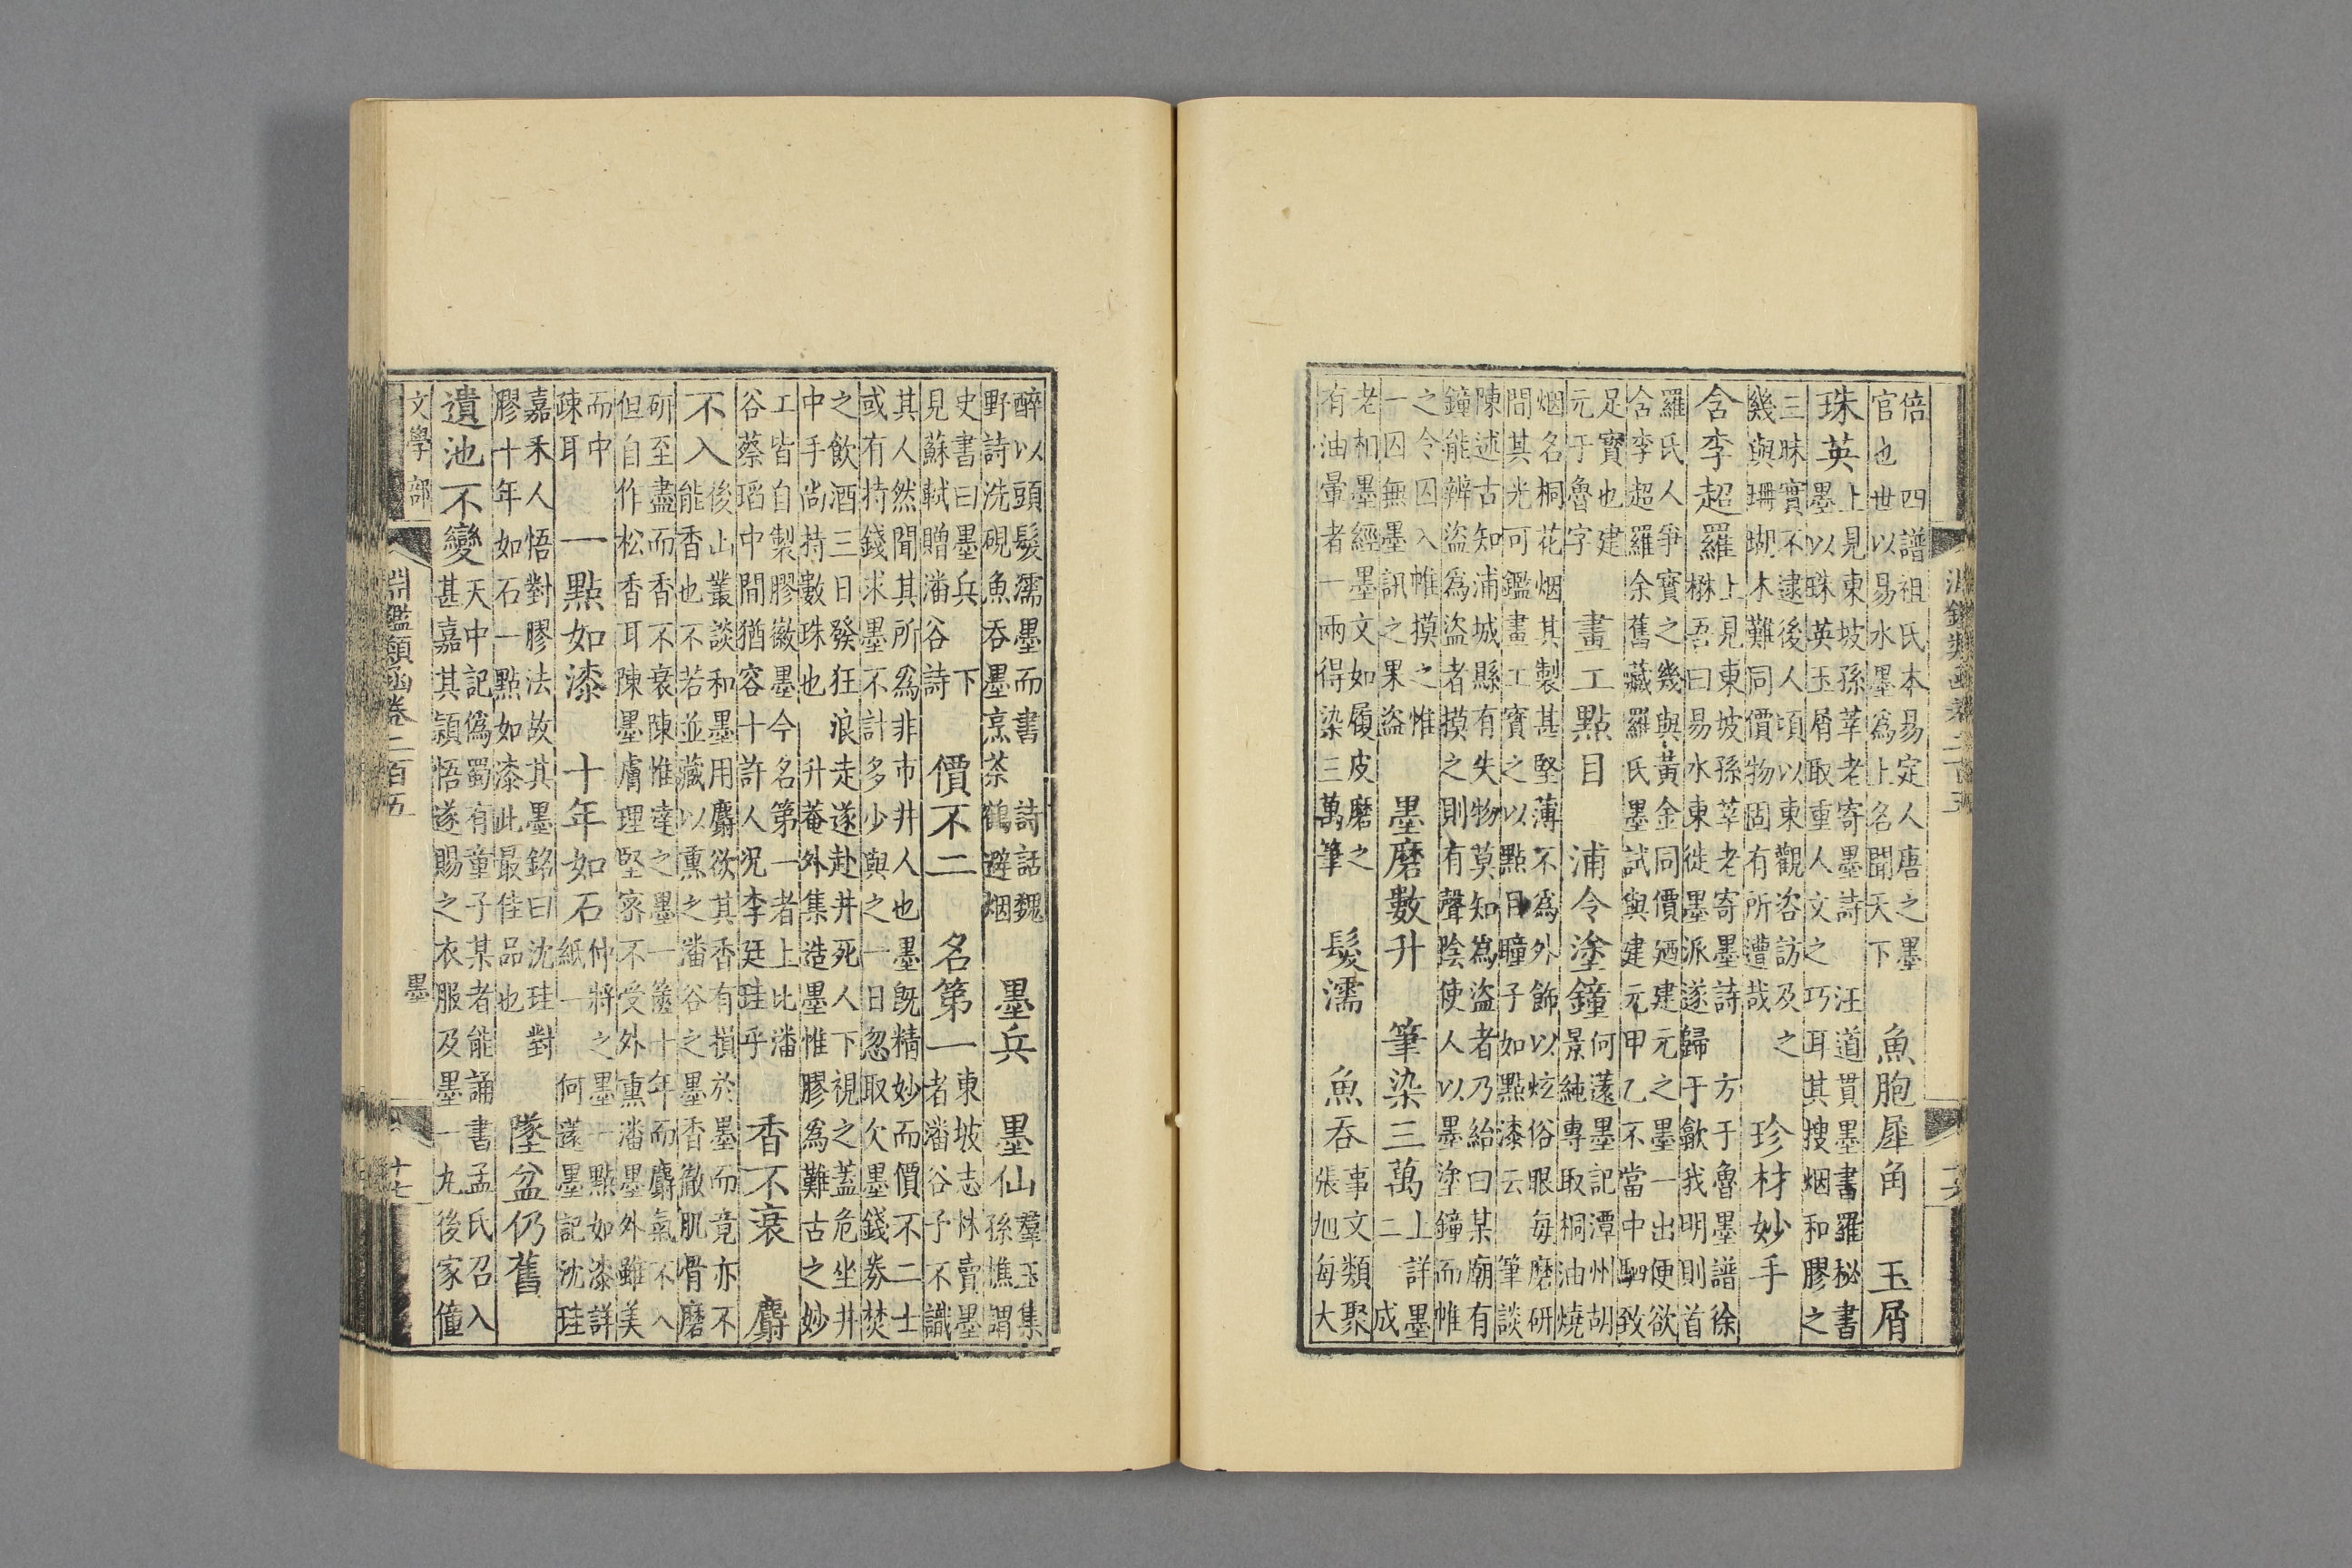 淵鑑類函卷二百五
倍　四譜祖氏本易定人唐之墨
官也世以易水墨爲上名聞天下
魚胞犀角　玉屑
珠英
上見東坡孫莘老寄墨詩　汪道貫墨書羅秘書
墨以珠英玉屑取重人文之巧耳其搜烟和膠之
三昧實不逮後人頃以東觀咨訪及之
幾與珊瑚木難同價物固有所遭哉
珍材妙手
含李超羅
上見東坡孫莘老寄墨詩　方于魯墨譜徐
楙吾曰易水東徙墨派遂歸于歙我明則首
羅氏人爭寳之幾與黃金同價廼建元之墨一出便欲
含李超羅余舊藏羅氏墨試與建元甲乙不當中駟致
足寳也建
元于魯字
畫工點目　浦令塗鐘
何薳墨記潭州胡
景純專取桐油燒
烟名桐花烟其製甚堅薄不爲外飾以炫俗眼每磨研
問其光可鑑畫工寳之以點目瞳子如點漆云　筆談
陳述古知浦城縣有失物莫知爲盗者乃紿曰某廟有
鐘能辨盗爲盗者摸之則有聲陰使人以墨塗鐘而帷
之令囚入帷摸之惟
一囚無墨訊之果盗
墨磨數升　筆染三萬
上詳墨
二　成
老相墨經墨文如履皮磨之
有油暈者一兩得染三萬筆
髮濡　魚吞
事文類聚
張旭每大
醉以頭髮濡墨而書　詩話魏
野詩洗硯魚吞墨烹茶鶴避烟
墨兵　墨仙
羣玉集
孫樵謂
史書曰墨兵　下
見蘇軾贈潘谷詩
價不二　名第一
東坡志林賣墨
者潘谷予不識
其人然聞其所爲非市井人也墨旣精妙而價不二士
或有持錢求墨不計多少與之一日忽取欠墨錢券焚
之飲酒三日發狂浪走遂赴井死人下視之蓋危坐井
中手尚持數珠也　升菴外集造墨惟膠爲難古之妙
工皆自製膠徽墨今名第一者上比潘
谷蔡瑫中間猶容十許人况李廷珪乎
香不衰　麝
不入
後山叢談和墨用麝欲其香有損於墨而竟亦不
能香也不若並藏以熏之潘谷之墨香徹肌骨磨
研至盡而香不衰陳惟達之墨一篋十年而麝氣不入
但自作松香耳陳墨膚理堅密不受外熏潘墨外雖美
而中
疎耳
一點如漆　十年如石
仲將之墨一點如漆詳
紙一　何薳墨記沈珪
嘉禾人悟對膠法故其墨銘曰沈珪對
膠十年如石一點如漆此最佳品也
墜盆仍舊
遺池不變
天中記僞蜀有童子某者能誦書孟氏召入
甚嘉其頴悟遂賜之衣服及墨一丸後家僮
文學部　淵鑑類函卷二百五　墨　十七